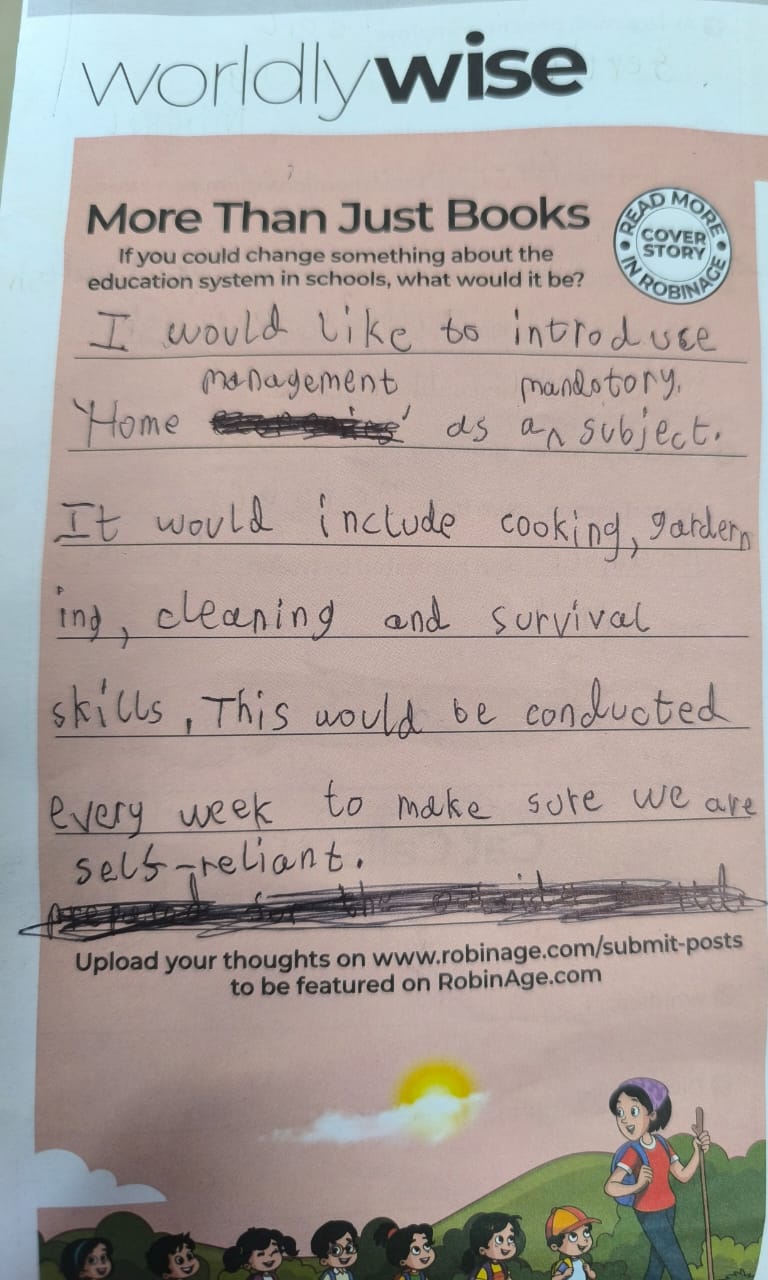 worldlywise
More Than Just Books
If you could change something about the
education system in schools, what would it be?
READ MORE
COVER
STORY
IN ROBINAGE
I would like to introduce
management mandatory.
'Home ' as an ^ subject.
It would include cooking, gardern
ing, cleaning and survival
skills, This would be conducted
every week to make sure we are
self-reliant.
Upload your thoughts on www.robinage.com/submit-posts
to be featured on RobinAge.com